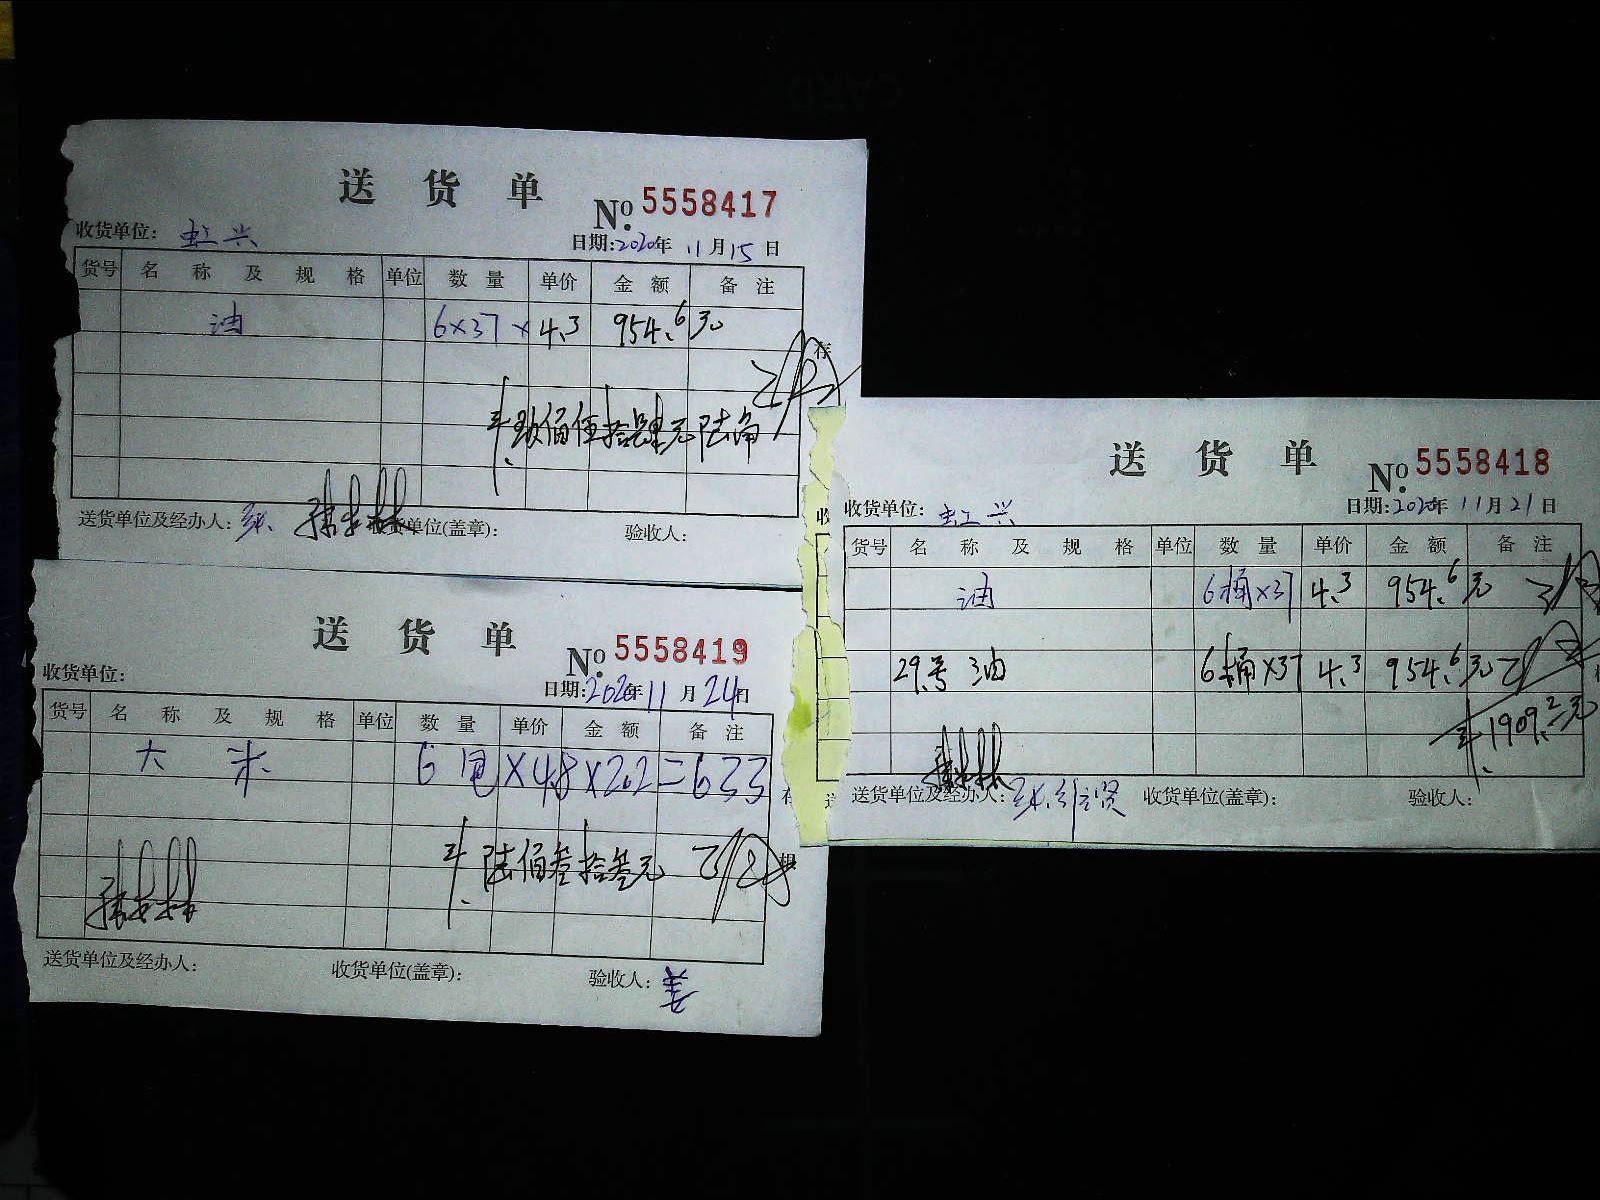 送货单
No. 5558417
收货单位: 虹兴
日期:2020年 11月15日
货号 名称及规格 单位 数量 单价 金额 备注
油 6×37× 4.3 954.6元
计玖佰伍拾肆元陆角
存
送货单位及经办人: 收货单位(盖章): 验收人:
送货单
No. 5558418
收货单位: 虹兴
日期:2020年 11月21日
货号 名称及规格 单位 数量 单价 金额 备注
油 6桶×37 4.3 954.6元
29号 油 6桶×37 4.3 954.6元
计1909.2元
送货单位及经办人: 收货单位(盖章): 验收人:
送货单
No. 5558419
收货单位:
日期:2020年11月24日
货号 名称及规格 单位 数量 单价 金额 备注
大米 6包×48×2.2=633
存
计陆佰叁拾叁元
根
送货单位及经办人: 收货单位(盖章): 验收人: 姜
收
送